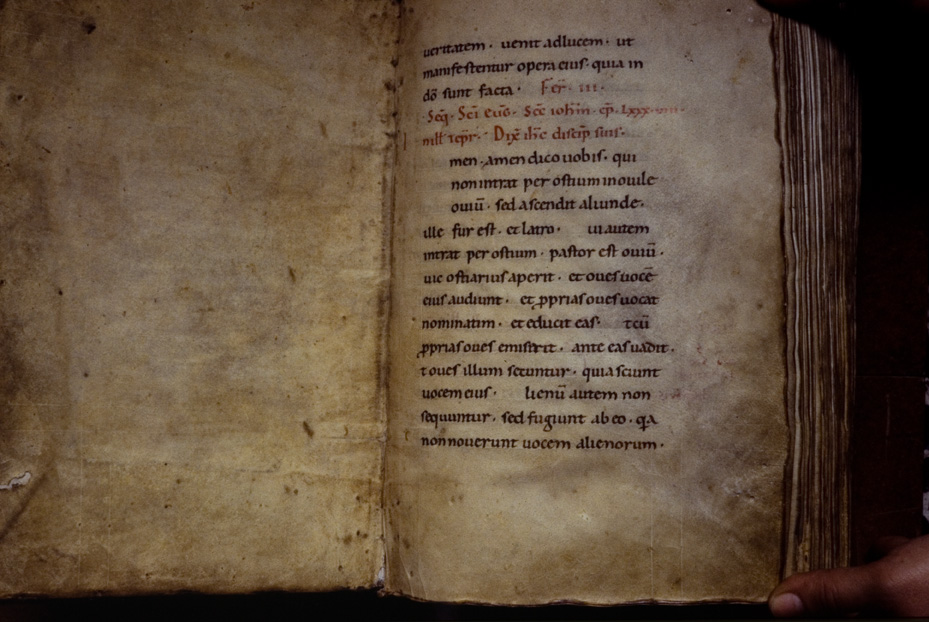 ueritatem · uenit ad lucem · ut
manifestentur opera eius · quia in
dō sunt facta · Fer̄ · iii ·
Seq̄ · Sc̄i eūg · Sc̄e ioh̄m · cp̄ · lxxx
Dix̄ ih̄c discip̄ suis ·
men · amen dico uobis · qui
non intrat per ostium in ouile
ouiū · sed ascendit aliunde ·
ille fur est · et latro · ui autem
intrat per ostium · pastor est ouiū ·
uic ostiarius aperit · et oues uocē
eius audiunt · et ꝓprias oues uocat
nominatim · et educit eas · t cū
ꝓprias oues emiserit · ante eas uadit ·
t oues illum secuntur · quia sciunt
uocem eius · lienū autem non
sequuntur · sed fugiunt ab eo · qa
non nouerunt uocem alienorum ·